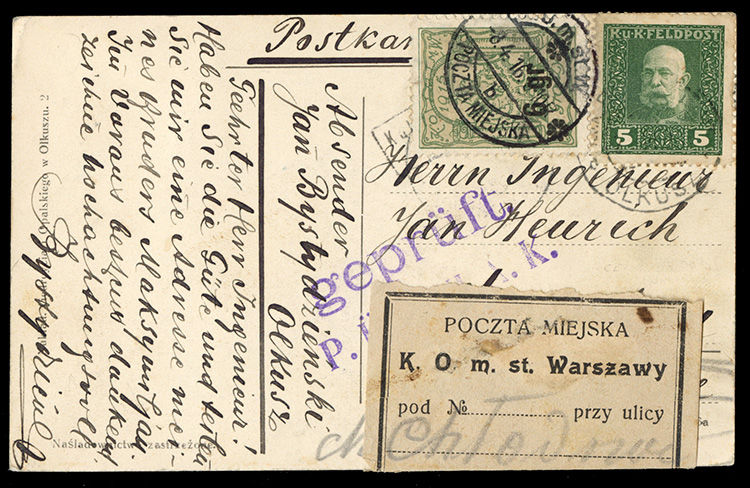 Postkar
Geehrter Herr Ingenieur!
Haben Sie die Güte und teilen
Sie mir eine Adresse mei-
nes Bruders Maksymiljan
Im Voraus bestens dankend
zeichne hochachtungsvoll
Absender
Jan Bystydzienski
Olkusz
Herrn Ingenieur
Jan Heurich
geprüft.
P. K.
K.u.K. FELDPOST
5 5
POCZTA MIEJSKA
b
OLKUS
POCZTA MIEJSKA
K. O. m. st. Warszawy
pod № przy ulicy
Opalskiego w Olkuszu. 2
Naśladownictwo zastrzeżone.